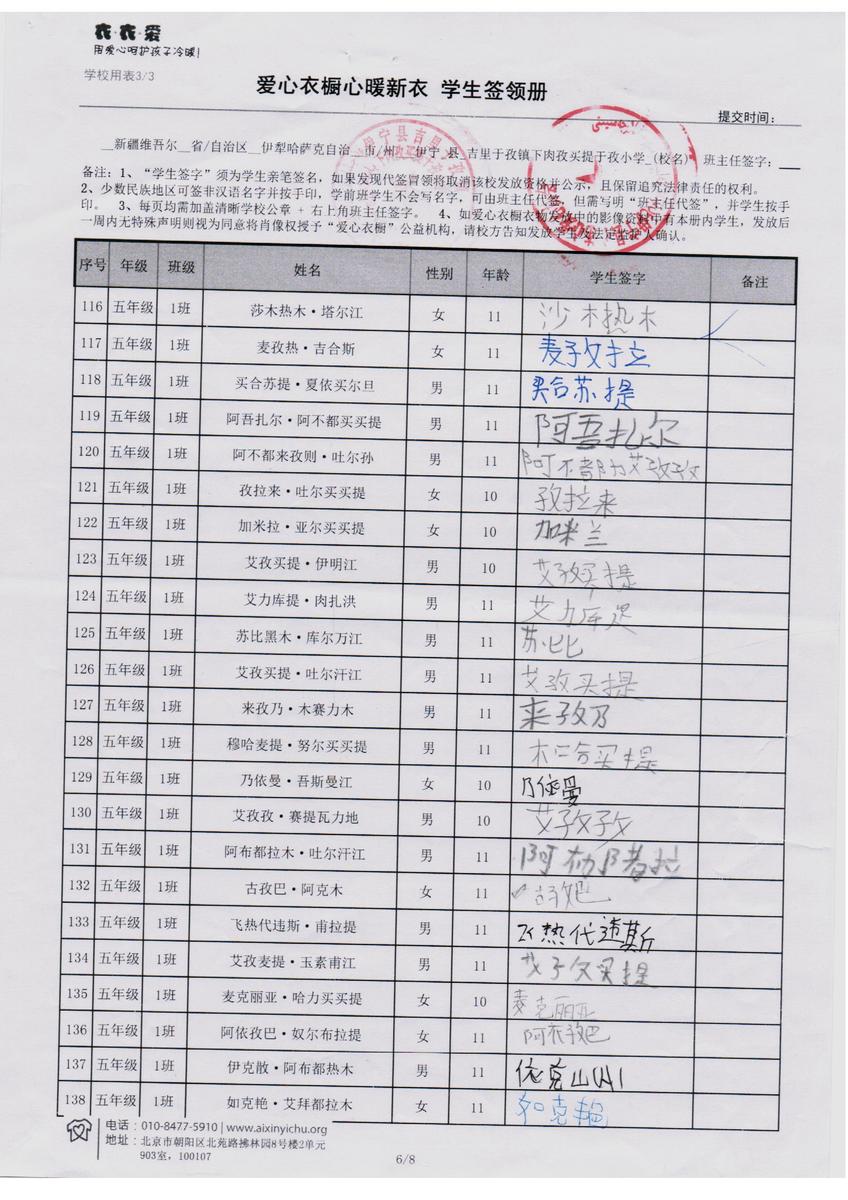 衣·衣·爱
用爱心呵护孩子冷暖!
学校用表3/3
爱心衣橱心暖新衣 学生签领册
提交时间:
__新疆维吾尔__省/自治区__伊犁哈萨克自治__市/州__伊宁_县_吉里于孜镇下肉孜买提于孜小学_(校名) 班主任签字:__
备注:1、“学生签字”须为学生亲笔签名,如果发现代签冒领将取消该校发放资格并公示,且保留追究法律责任的权利。
2、少数民族地区可签非汉语名字并按手印,学前班学生不会写名字,可由班主任代签,但需写明“班主任代签”,并学生按手
印。 3、每页均需加盖清晰学校公章+右上角班主任签字。 4、如爱心衣橱衣物发放中的影像资料中有本册内学生,发放后
一周内无特殊声明则视为同意将肖像权授予“爱心衣橱”公益机构,请校方告知发放学生及法定监护人确认。
序号 年级 班级 姓名 性别 年龄 学生签字 备注
116 五年级 1班 莎木热木·塔尔江 女 11 沙木热木
117 五年级 1班 麦孜热·吉合斯 女 11 麦孜拉
118 五年级 1班 买合苏提·夏依买尔旦 男 11 买合苏提
119 五年级 1班 阿吾扎尔·阿不都买买提 男 11 阿吾扎尔
120 五年级 1班 阿不都来孜则·吐尔孙 男 11
121 五年级 1班 孜拉来·吐尔买买提 女 10 孜拉来
122 五年级 1班 加米拉·亚尔买买提 女 10 加米兰
123 五年级 1班 艾孜买提·伊明江 男 10 艾孜买提
124 五年级 1班 艾力库提·肉扎洪 男 11 艾力库提
125 五年级 1班 苏比黑木·库尔万江 男 11 苏比
126 五年级 1班 艾孜买提·吐尔汗江 男 11 艾孜买提
127 五年级 1班 来孜乃·木赛力木 男 11 来孜乃
128 五年级 1班 穆哈麦提·努尔买买提 男 11 买提
129 五年级 1班 乃依曼·吾斯曼江 女 10 乃依曼
130 五年级 1班 艾孜孜·赛提瓦力地 男 10 艾孜孜
131 五年级 1班 阿布都拉木·吐尔汗江 男 11 阿布都拉
132 五年级 1班 古孜巴·阿克木 女 11 古孜巴
133 五年级 1班 飞热代违斯·甫拉提 男 11 飞热代违斯
134 五年级 1班 艾孜麦提·玉素甫江 男 11 艾孜买提
135 五年级 1班 麦克丽亚·哈力买买提 女 10 麦克丽亚
136 五年级 1班 阿依孜巴·奴尔布拉提 女 11 阿衣孜巴
137 五年级 1班 伊克散·阿布都热木 男 11 依克山
138 五年级 1班 如克艳·艾拜都拉木 女 11 如克艳
电话:010-8477-5910 | www.aixinyichu.org
地址:北京市朝阳区北苑路拂林园8号楼2单元
903室,100107
6/8